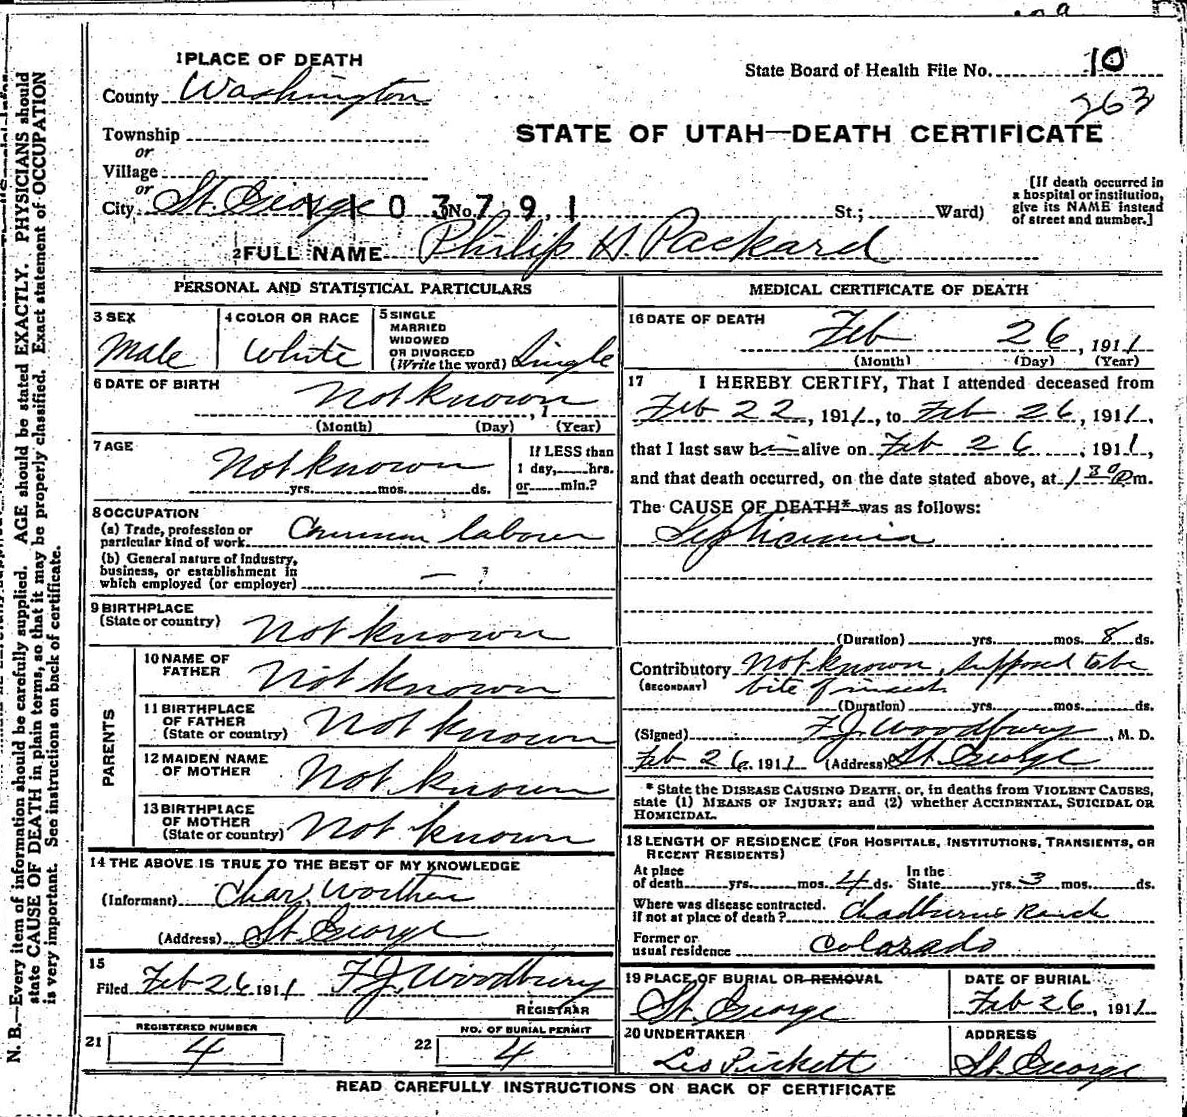 1 PLACE OF DEATH
County Washington
State Board of Health File No. 10
263
Township
or
Village
or
City St. George No. St.; Ward)
1103791
STATE OF UTAH—DEATH CERTIFICATE
[If death occurred in
a hospital or institution,
give its NAME instead
of street and number.]
2 FULL NAME Philip H. Packard
PERSONAL AND STATISTICAL PARTICULARS
3 SEX
Male
4 COLOR OR RACE
White
5 SINGLE
MARRIED
WIDOWED
OR DIVORCED
(Write the word) Single
6 DATE OF BIRTH
Not known , 1
(Month) (Day) (Year)
7 AGE
Not known
yrs. mos. ds.
If LESS than
1 day, hrs.
or min.?
8 OCCUPATION
(a) Trade, profession or
particular kind of work Common laborer
(b) General nature of industry,
business, or establishment in
which employed (or employer) — ?
9 BIRTHPLACE
(State or country) Not known
PARENTS
10 NAME OF
FATHER Not known
11 BIRTHPLACE
OF FATHER
(State or country) Not known
12 MAIDEN NAME
OF MOTHER Not known
13 BIRTHPLACE
OF MOTHER
(State or country) Not known
14 THE ABOVE IS TRUE TO THE BEST OF MY KNOWLEDGE
(Informant) Chas. Worthen
(Address) St. George
15
Filed Feb 26 1911 F.J. Woodbury
REGISTRAR
21 REGISTERED NUMBER
4
22 NO. OF BURIAL PERMIT
4
MEDICAL CERTIFICATE OF DEATH
16 DATE OF DEATH
Feb 26, 1911
(Month) (Day) (Year)
17 I HEREBY CERTIFY, That I attended deceased from
Feb 22, 1911, to Feb 26, 1911,
that I last saw him alive on Feb 26, 1911,
and that death occurred, on the date stated above, at 1 30 p m.
The CAUSE OF DEATH* was as follows:
Septicimia
(Duration) yrs. mos. 8 ds.
Contributory Not known, supposed to be
(SECONDARY) bite of insect
(Duration) yrs. mos. ds.
(Signed) F.J. Woodbury, M. D.
Feb 26, 1911 (Address) St. George
* State the DISEASE CAUSING DEATH, or, in deaths from VIOLENT CAUSES,
state (1) MEANS OF INJURY; and (2) whether ACCIDENTAL, SUICIDAL OR
HOMICIDAL.
18 LENGTH OF RESIDENCE (FOR HOSPITALS, INSTITUTIONS, TRANSIENTS, OR
RECENT RESIDENTS)
At place
of death yrs. mos. 4 ds.
In the
State yrs. 3 mos. ds.
Where was disease contracted.
if not at place of death? Chadburns Ranch
Former or
usual residence Colorado
19 PLACE OF BURIAL OR REMOVAL
St. George
DATE OF BURIAL
Feb 26, 1911
20 UNDERTAKER
Leo Pickett
ADDRESS
St. George
READ CAREFULLY INSTRUCTIONS ON BACK OF CERTIFICATE
N. B.—Every item of information should be carefully supplied. AGE should be stated EXACTLY. PHYSICIANS should
state CAUSE OF DEATH in plain terms, so that it may be properly classified. Exact statement of OCCUPATION
is very important. See instructions on back of certificate.